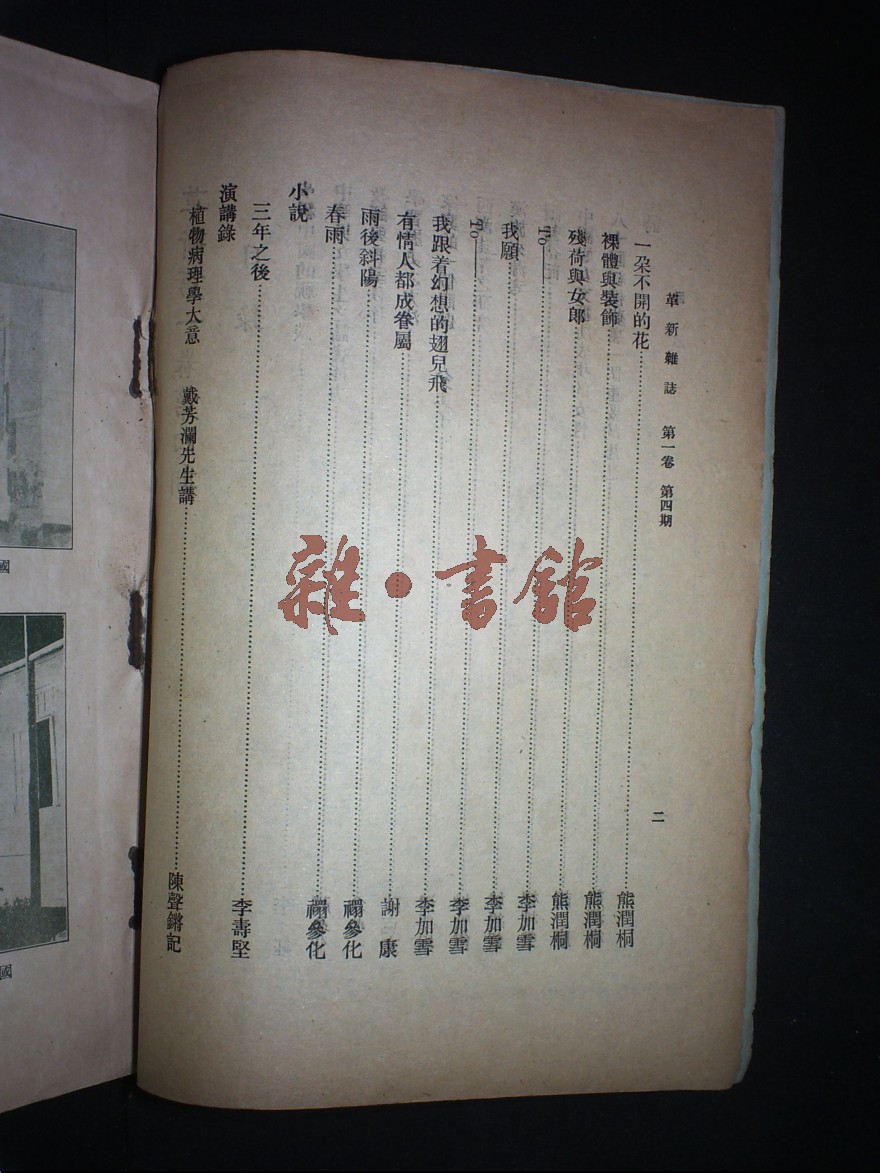 革新雜誌 第一卷 第四期 二
一朶不開的花 熊潤桐
裸體與裝飾 熊潤桐
殘荷與女郎 熊潤桐
To—— 李加雪
我願 李加雪
To—— 李加雪
我跟着幻想的翅兒飛 李加雪
有情人都成眷屬 謝康
雨後斜陽 禤參化
春雨 禤參化
小說
三年之後 李壽堅
演講錄
植物病理學大意 戴芳瀾先生講 陳聲鏘記
國
國
雜•書館